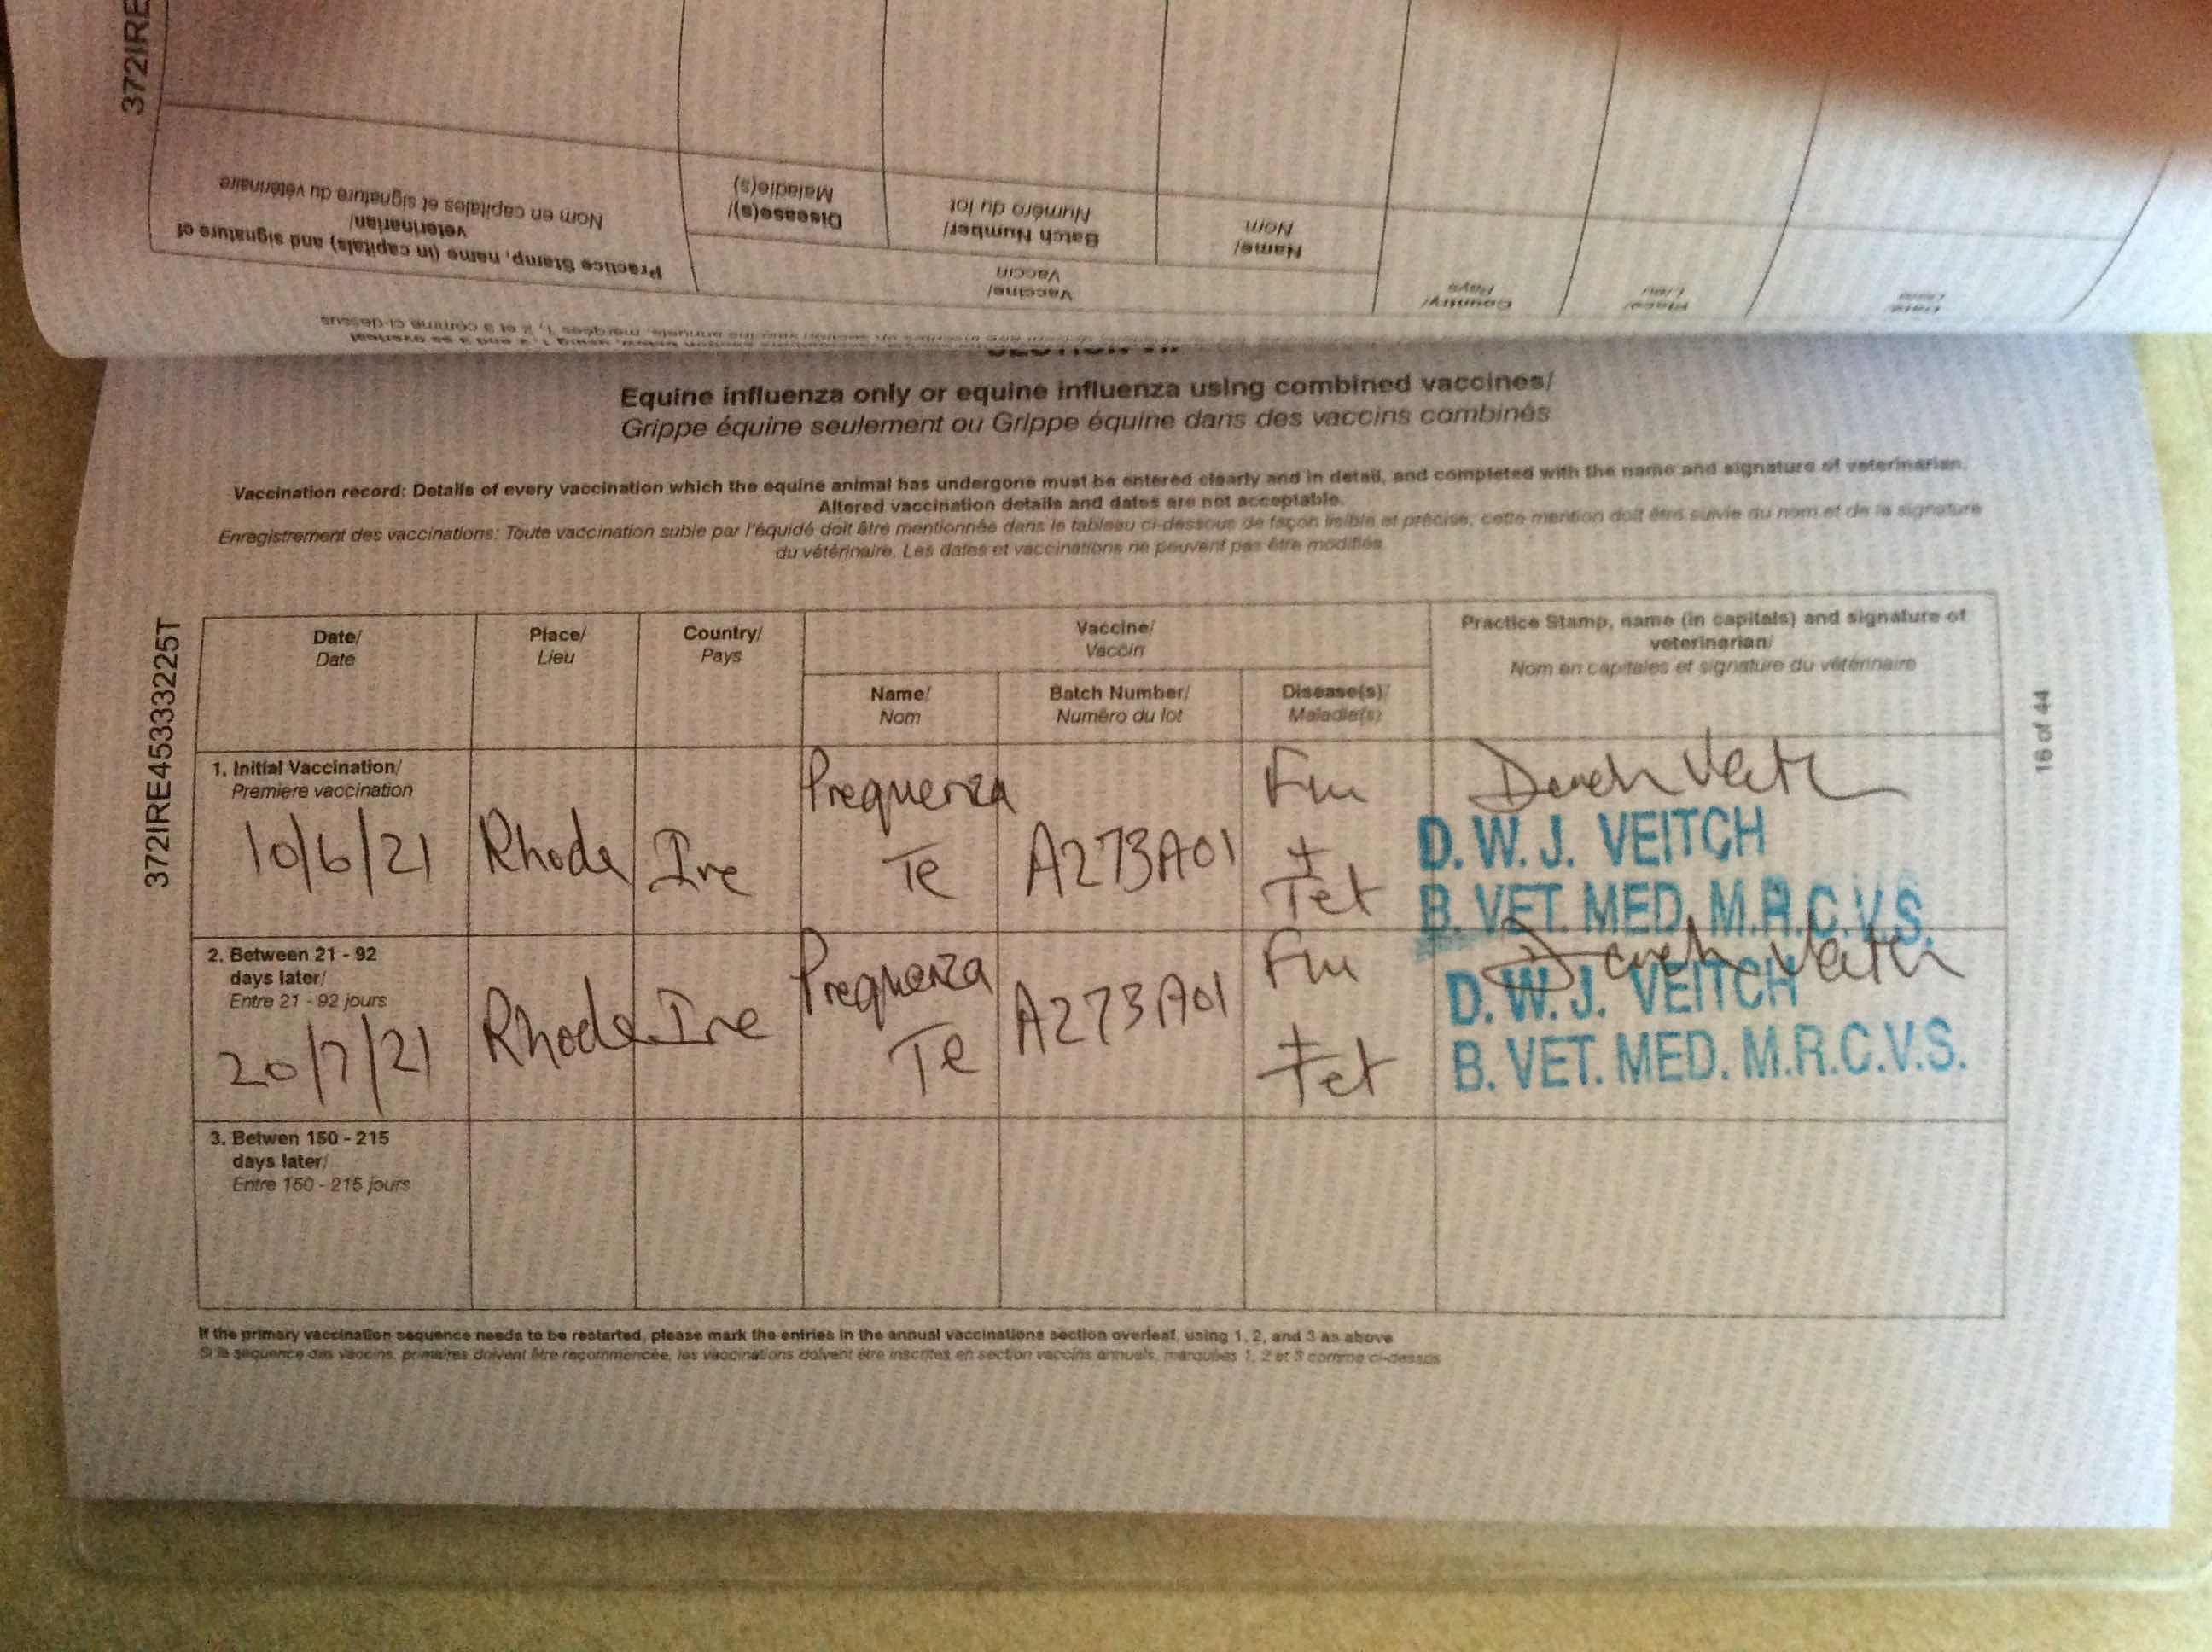 372IRE
Practice Stamp, name (in capitals) and signature of
veterinarian/
Nom en capitales et signature du vétérinaire
Vaccine/
Vaccin
Disease(s)/
Maladie(s)
Batch Number/
Numéro du lot
Name/
Nom
Country/
Pays
Place/
Lieu
Date/
Date
Equine influenza only or equine influenza using combined vaccines/
Grippe équine seulement ou Grippe équine dans des vaccins combinés
Vaccination record: Details of every vaccination which the equine animal has undergone must be entered clearly and in detail, and completed with the name and signature of veterinarian.
Altered vaccination details and dates are not acceptable.
Enregistrement des vaccinations: Toute vaccination subie par l'équidé doit être mentionnée dans le tableau ci-dessous de façon lisible et précise, cette mention doit être suivie du nom et de la signature
du vétérinaire. Les dates et vaccinations ne peuvent pas être modifiés
372IRE45333225T
16 of 44
Date/
Date
Place/
Lieu
Country/
Pays
Vaccine/
Vaccin
Name/
Nom
Batch Number/
Numéro du lot
Disease(s)/
Maladie(s)
Practice Stamp, name (in capitals) and signature of
veterinarian/
Nom en capitales et signature du vétérinaire
1. Initial Vaccination/
Premiere vaccination
10/6/21
Rhode
Ire
Prequenza
Te
A273A01
Flu
+
Tet
Derek Veitch
D. W. J. VEITCH
B. VET. MED. M.R.C.V.S.
2. Between 21 - 92
days later/
Entre 21 - 92 jours
20/7/21
Rhode
Ire
Prequenza
Te
A273A01
Flu
+
Tet
Derek Veitch
D. W. J. VEITCH
B. VET. MED. M.R.C.V.S.
3. Betwen 150 - 215
days later/
Entre 150 - 215 jours
If the primary vaccination sequence needs to be restarted, please mark the entries in the annual vaccinations section overleaf, using 1, 2, and 3 as above
Si la séquence des vaccins, primaires doivent être recommencée, les vaccinations doivent être inscrites en section vaccins annuels, marquées 1, 2 et 3 comme ci-dessus